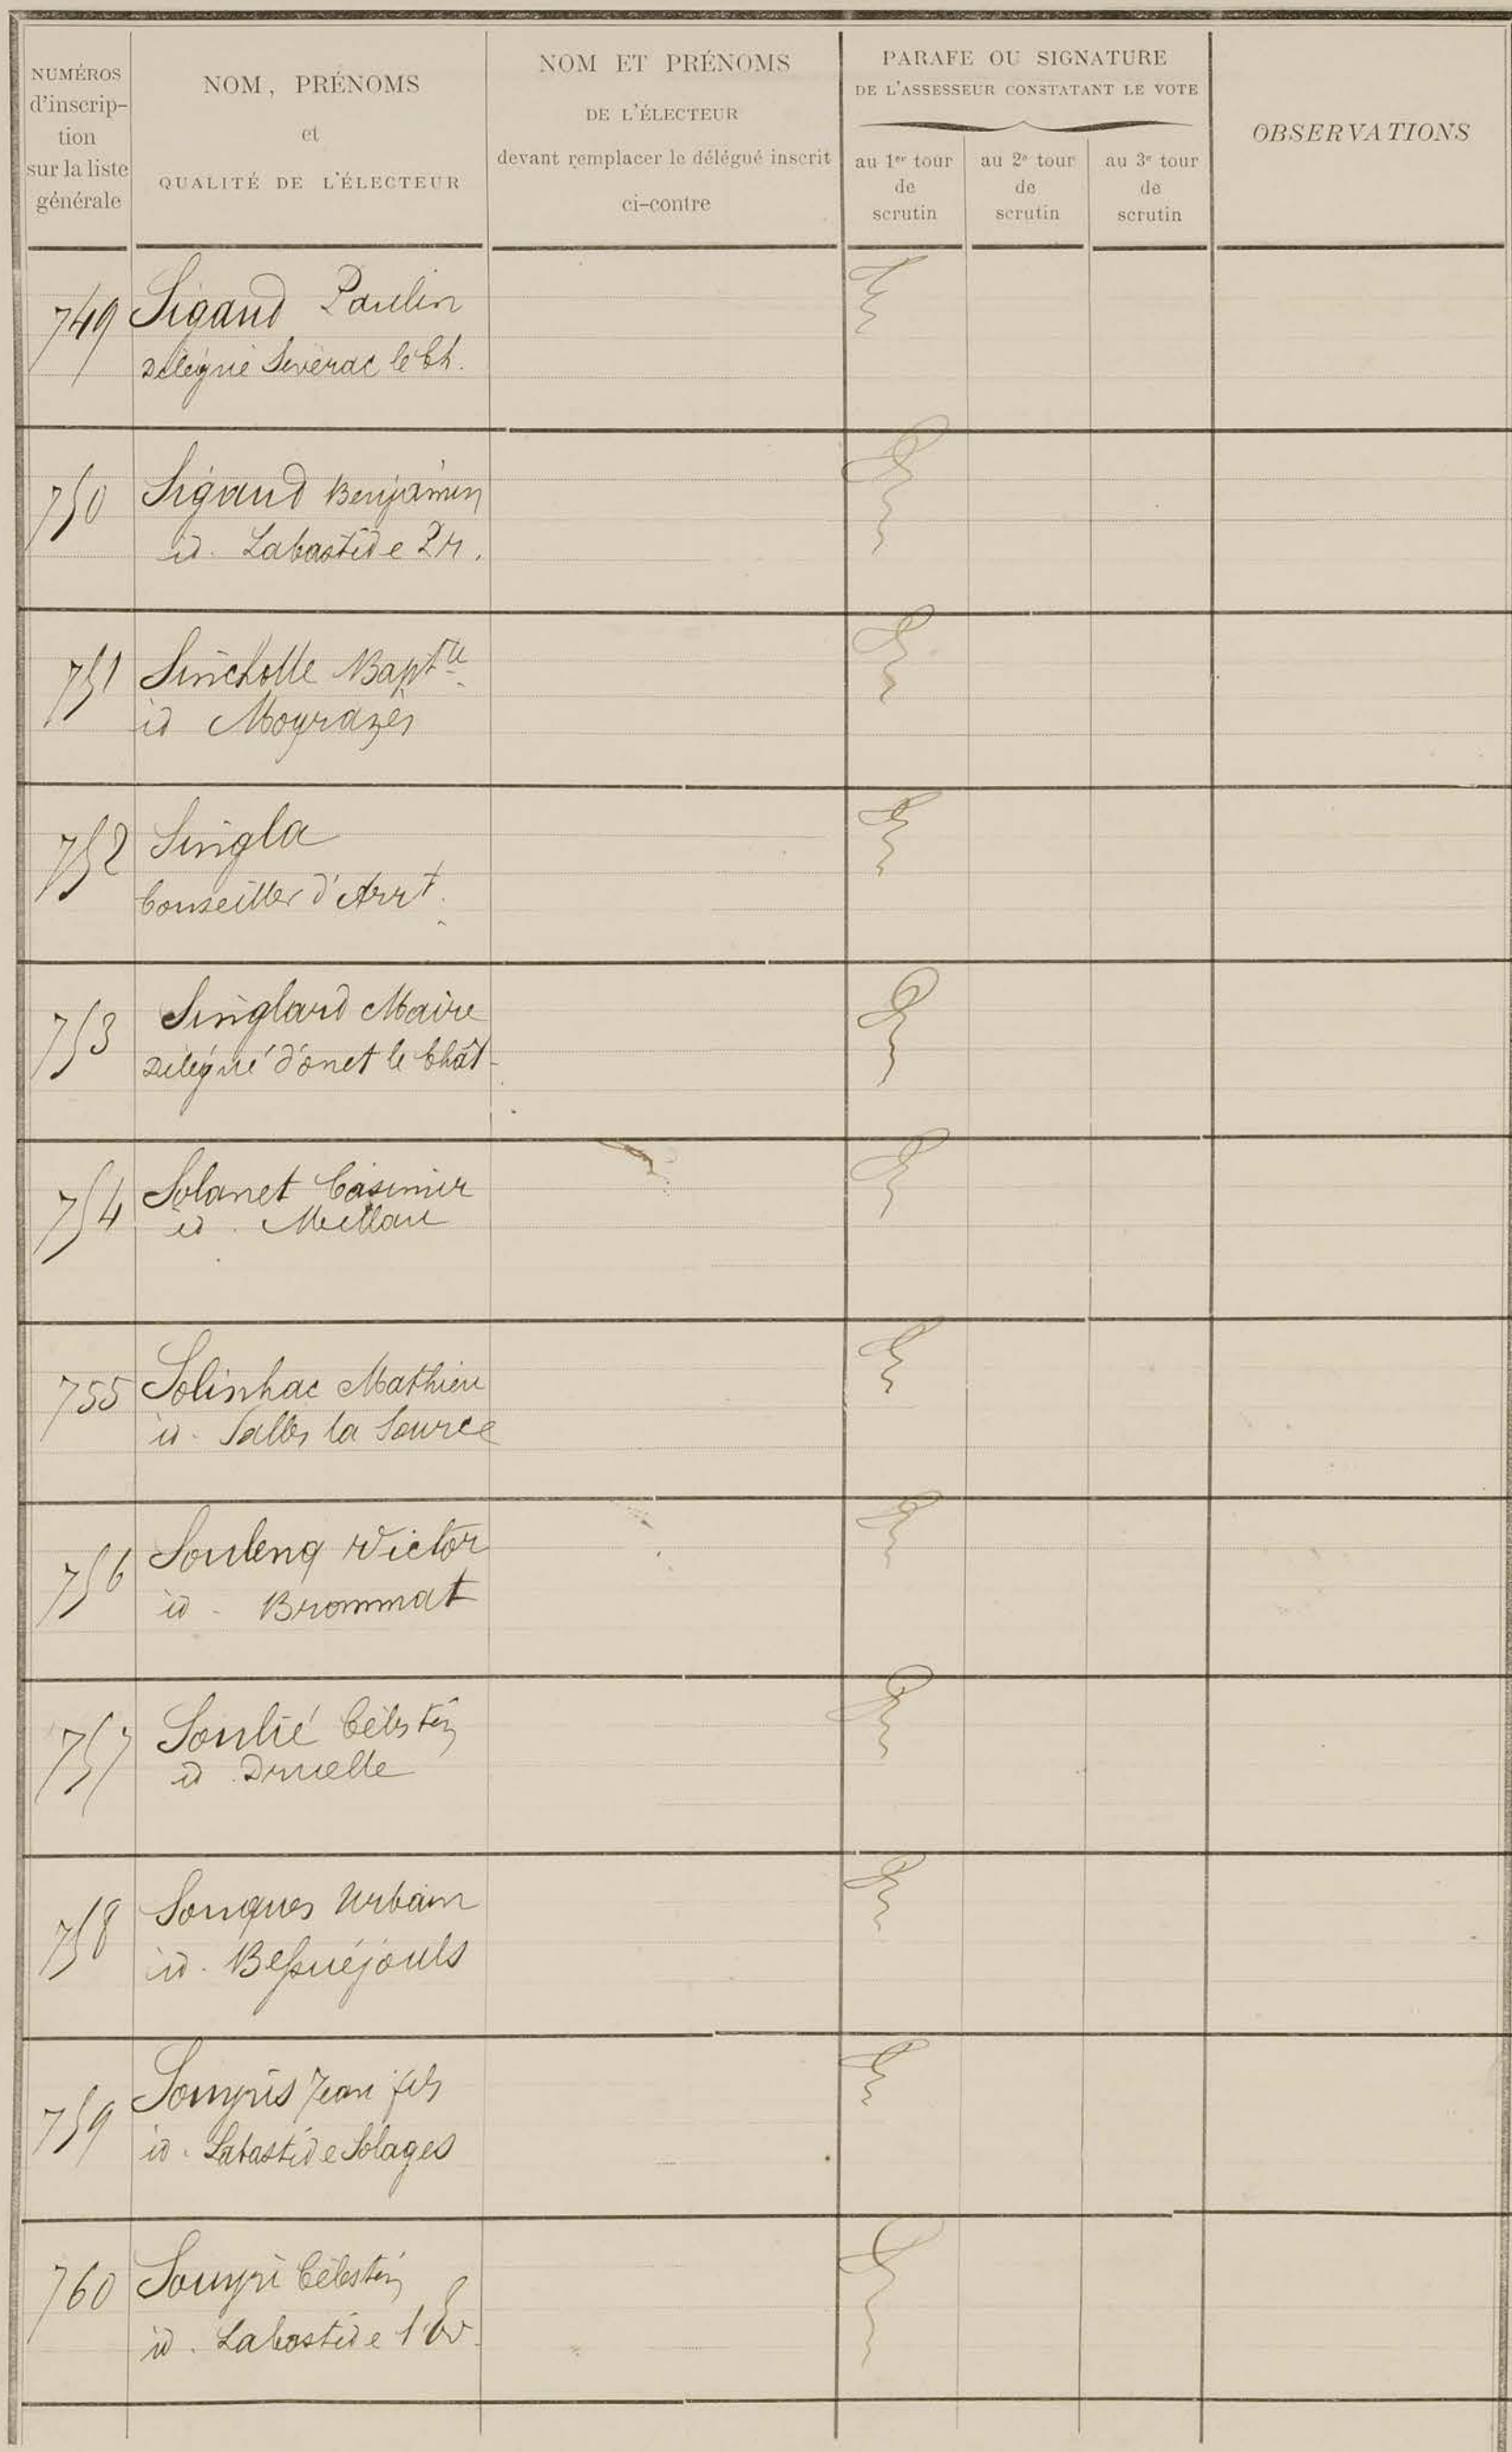 NUMÉROS
d'inscrip-
tion
sur la liste
générale
NOM, PRÉNOMS
et
QUALITÉ DE L'ÉLECTEUR
NOM ET PRÉNOMS
DE L'ÉLECTEUR
devant remplacer le délégué inscrit
ci-contre
PARAFE OU SIGNATURE
DE L'ASSESSEUR CONSTATANT LE VOTE
au 1er tour
de
scrutin
au 2e tour
de
scrutin
au 3e tour
de
scrutin
OBSERVATIONS
749 Sigaud Paulin
Délégué Séverac le Ch.
750 Sigaud Benjamin
id. Labastide Pr.
751 Sincholle Bapte
id Moyrazès
752 Singla
Conseiller d'Arrt.
753 Singlard Maire
Délégué d'onet le Chât
754 Solanet Casimir
id. Millau
755 Solinhac Mathieu
id. Salles la Source
756 Soulenq Victor
id. Brommat
757 Soulié Célestin
id. Druelle
758 Souques Urbain
id. Bessuéjouls
759 Souyris Jean fils
id. Labastide Solages
760 Souyri Célestin
id. Labastide l'Ev.